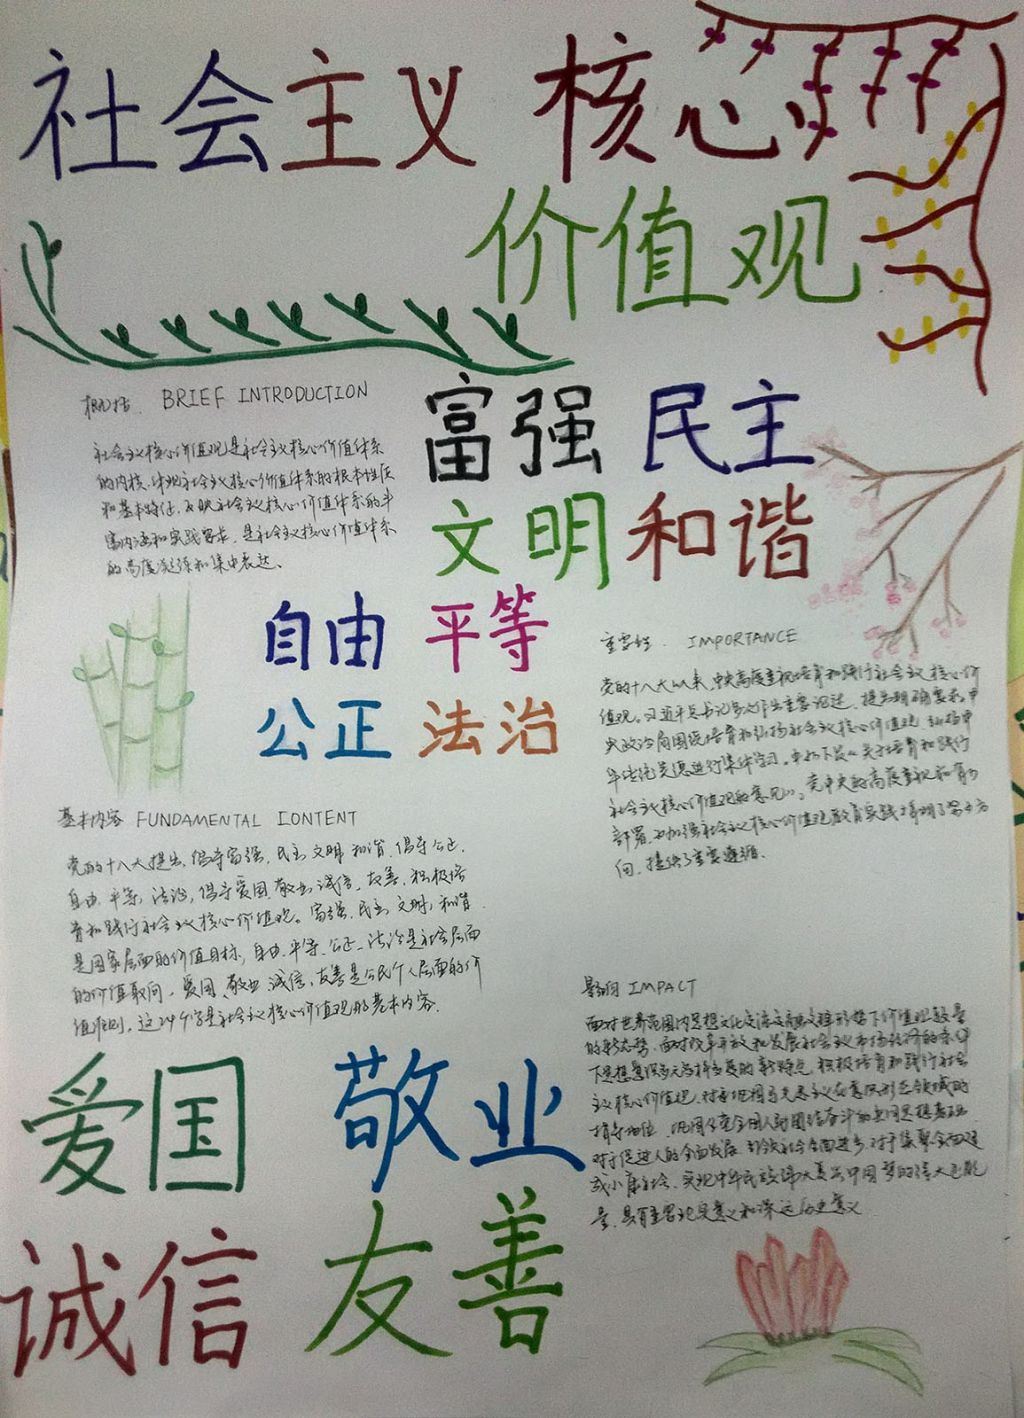 社会主义 核心
价值观
概括. BRIEF INTRODUCTION
社会主义核心价值观是社会主义核心价值体系
的内核,体现社会主义核心价值体系的根本性质
和基本特征,反映社会主义核心价值体系的丰
富内涵和实践要求,是社会主义核心价值体系
的高度凝练和集中表达、
富强 民主
文明 和谐
自由 平等
公正 法治
重要性. IMPORTANCE
党的十八大以来,中央高度重视培育和践行社会主义核心价
值观。习近平总书记多次作出重要论述、提出明确要求,中
央政治局围绕培育和弘扬社会主义核心价值观 弘扬中
华传统美德进行集体学习,中办下发《关于培育和践行
社会主义核心价值观的意见》,党中央的高度重视和有力
部署,为加强社会主义核心价值观教育实践指明了努力方
向,提供了重要遵循、
基本内容 FUNDAMENTAL IONTENT
党的十八大提出,倡导富强,民主,文明 和谐,倡导公正,
自由,平等,法治,倡导爱国,敬业,诚信,友善,积极培
育和践行社会主义核心价值观。富强,民主,文明,和谐
是国家层面的价值目标,自由,平等,公正,法治是社会层面
的价值取向,爱国,敬业,诚信,友善是公民个人层面的价
值准则,这24个字是社会主义核心价值观的基本内容.
影响 IMPACT
面对世界范围内思想文化交流交融交锋形势下价值观较量
的新态势,面对改革开放和发展社会主义市场经济的条件
下思想意识多元多样多变的新特点,积极培育和践行社会
主义核心价值观,对于巩固马克思主义在意识形态领域的
指导地位,巩固全党全国人民团结奋斗的共同思想基础
对于促进人的全面发展,引领社会全面进步,对于集聚全面建
成小康社会,实现中华民族伟大复兴中国梦的强大正能
量,具有重要现实意义和深远历史意义
爱国 敬业
诚信 友善